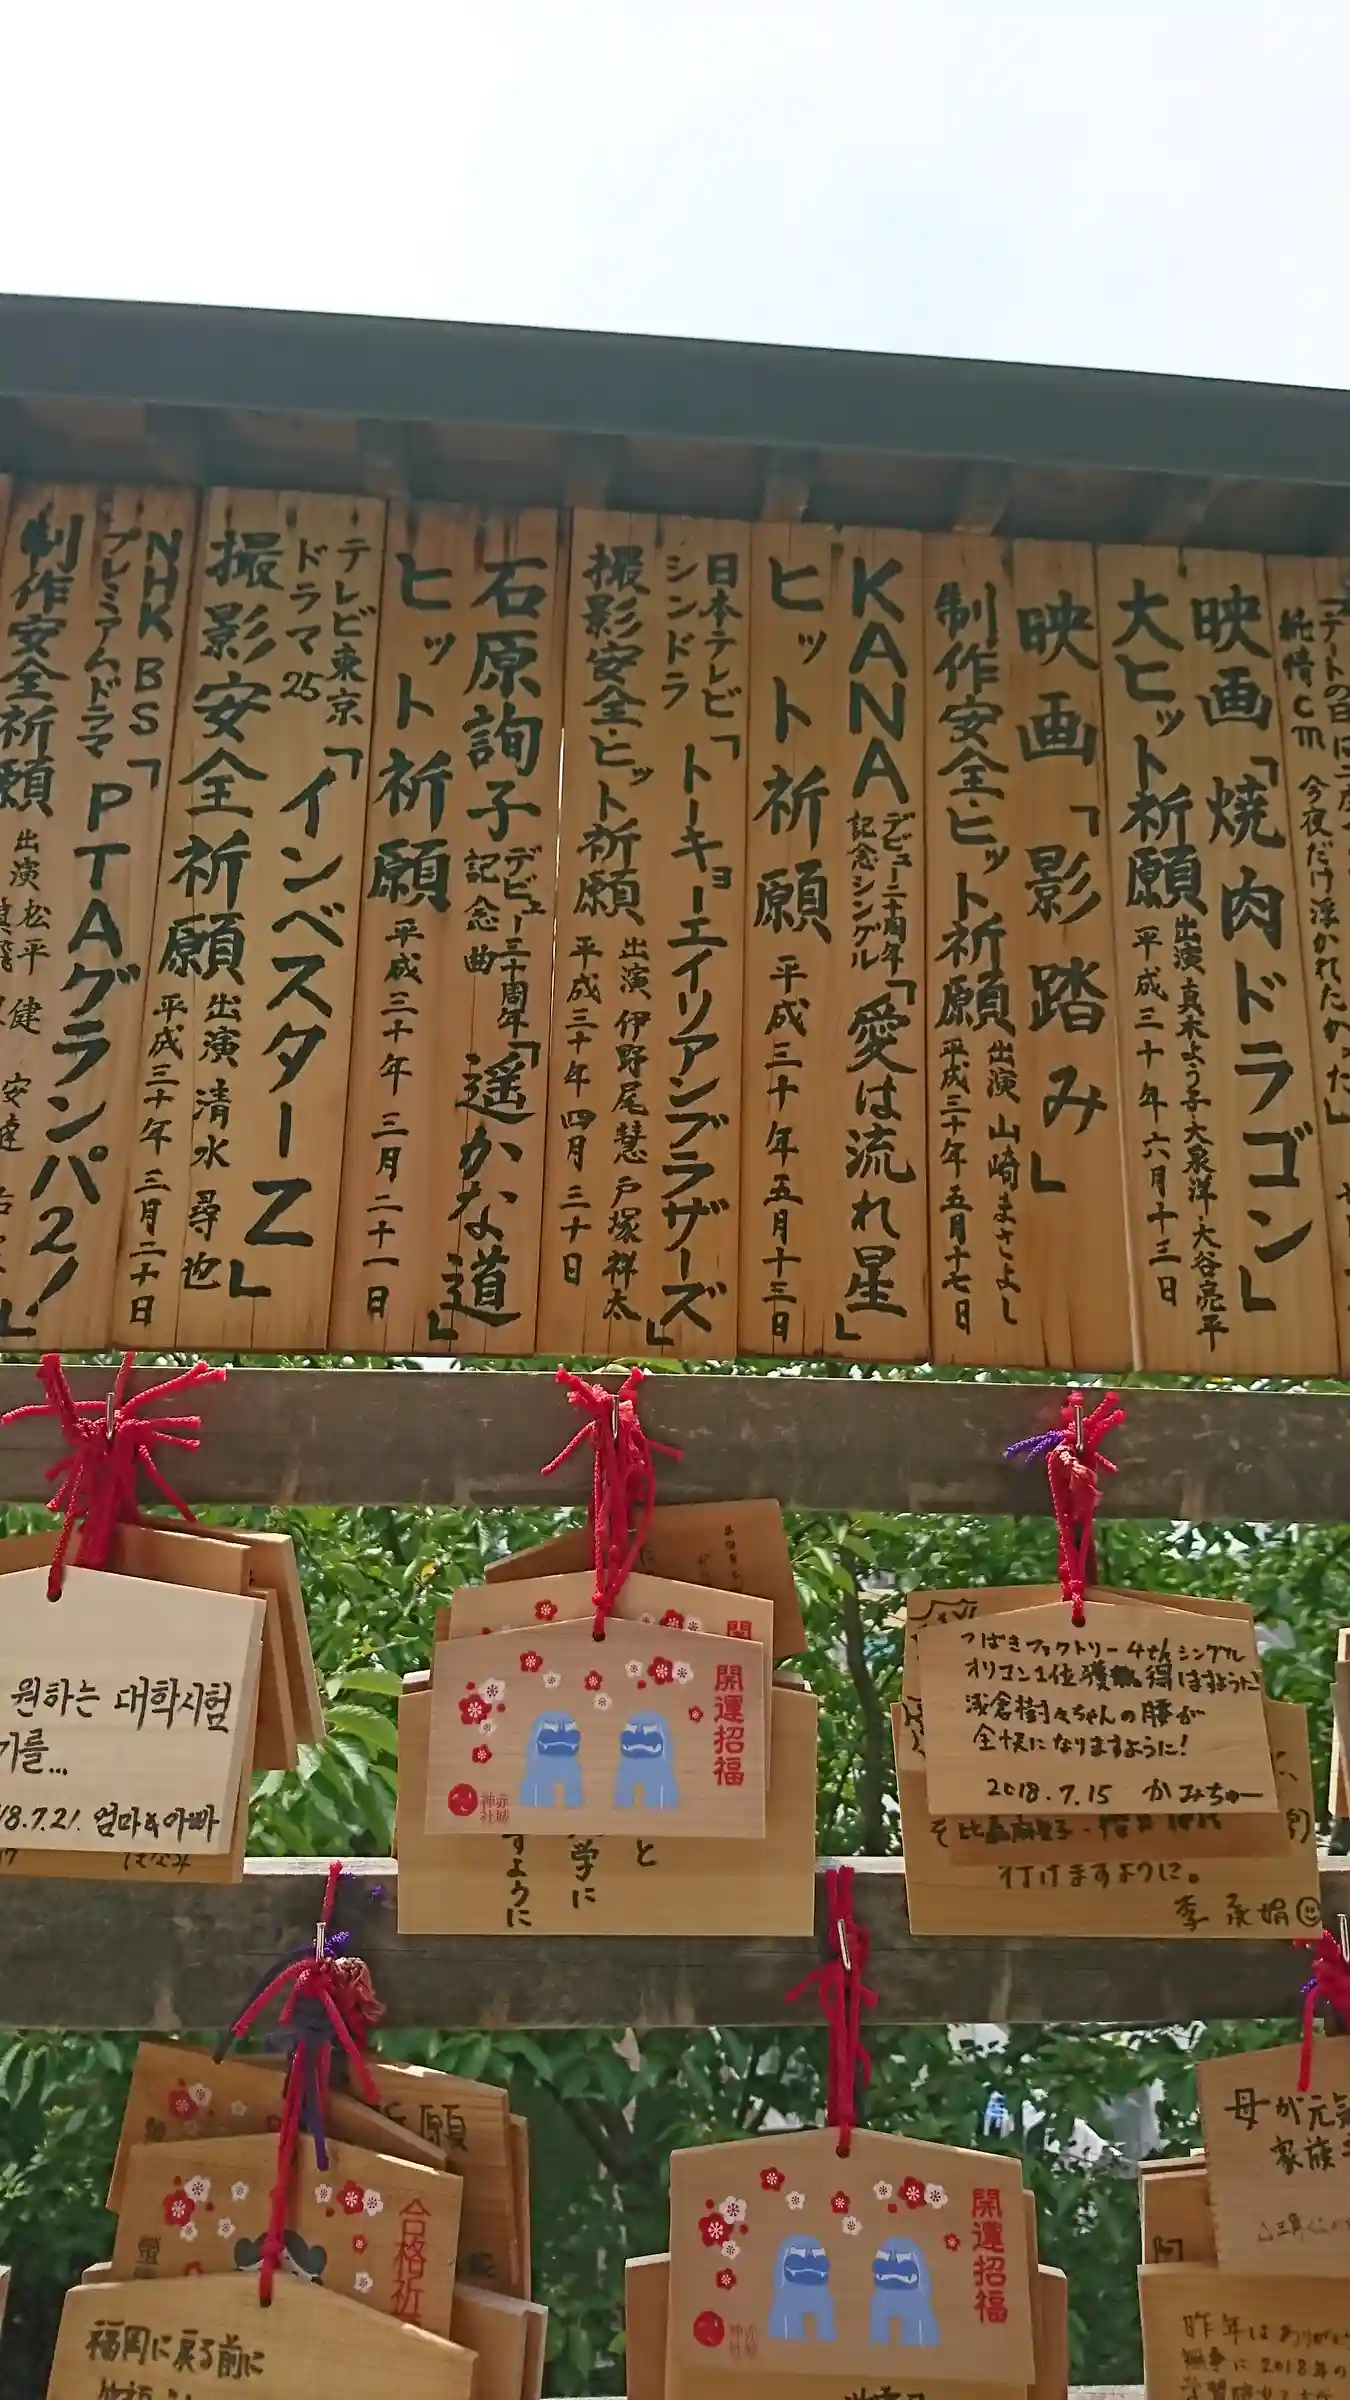 純情cm
今夜だけ浮かれたかった」
映画「焼肉ドラゴン」
大ヒット祈願
出演 真木よう子・大泉洋・大谷亮平
平成三十年六月十三日
映画「影踏み」
制作安全・ヒット祈願
出演 山崎まさよし
平成三十年五月十七日
KANA
デビュー二十周年
記念シングル
「愛は流れ星」
ヒット祈願
平成三十年五月十三日
日本テレビ
シンドラ
「トーキョーエイリアンブラザーズ」
撮影安全・ヒット祈願
出演 伊野尾慧 戸塚祥太
平成三十年四月三十日
石原詢子
デビュー三十周年
記念曲
「遥かな道」
ヒット祈願
平成三十年三月二十一日
テレビ東京
ドラマ25
「インベスターZ」
撮影安全祈願
出演 清水 尋也
平成三十年三月二十日
NHK BS
プレミアムドラマ
「PTAグランパ2!」
制作安全祈願
出演 松平 健
安達
원하는 대학시험
기를...
18.7.21. 엄마&아빠
開運招福
赤城
神社
と
学に
すように
つばきファクトリー4thシングル
オリコン1位獲得しますように
浅倉樹々ちゃんの腰が
全快になりますように!
2018.7.15 かみちゅー
行けますように。
李 承娟
祈願
合格祈
福岡に戻る前に
開運招福
赤城
神社
母が元気
家族
昨年はありがと
無事に2018年の